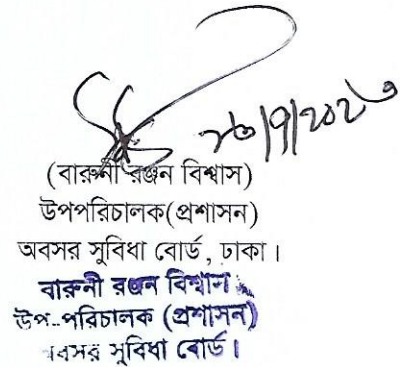 ২৬/৭/২০২৩
(বারুনী রঞ্জন বিশ্বাস)
উপপরিচালক(প্রশাসন)
অবসর সুবিধা বোর্ড, ঢাকা।
বারুনী রঞ্জন বিশ্বাস
উপ-পরিচালক (প্রশাসন)
অবসর সুবিধা বোর্ড।